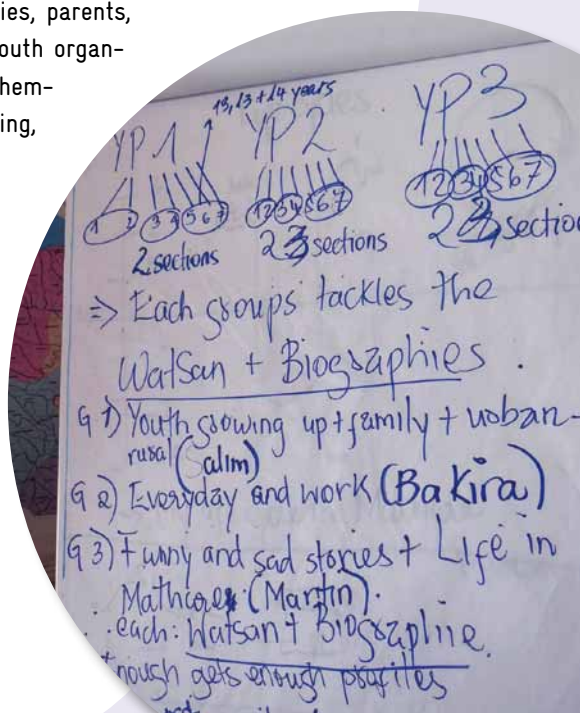 ies, parents,
outh organ-
hem-
ing,
13, 13 + 14 years
YP1 YP2 YP3
1 2 3 4 5 6 7 1 2 3 4 5 6 7 1 2 3 4 5 6 7
2 sections 2 sections 2 sectio
=> Each groups tackles the
WatSan + Biographies.
G 1) Youth growing up + family + urban-
rural (Salim)
G 2) Everyday and work (Bakira)
G 3) Funny and sad stories + Life in
Mathare (Martin).
each: Watsan + Biographie.
nough gets enough profiles